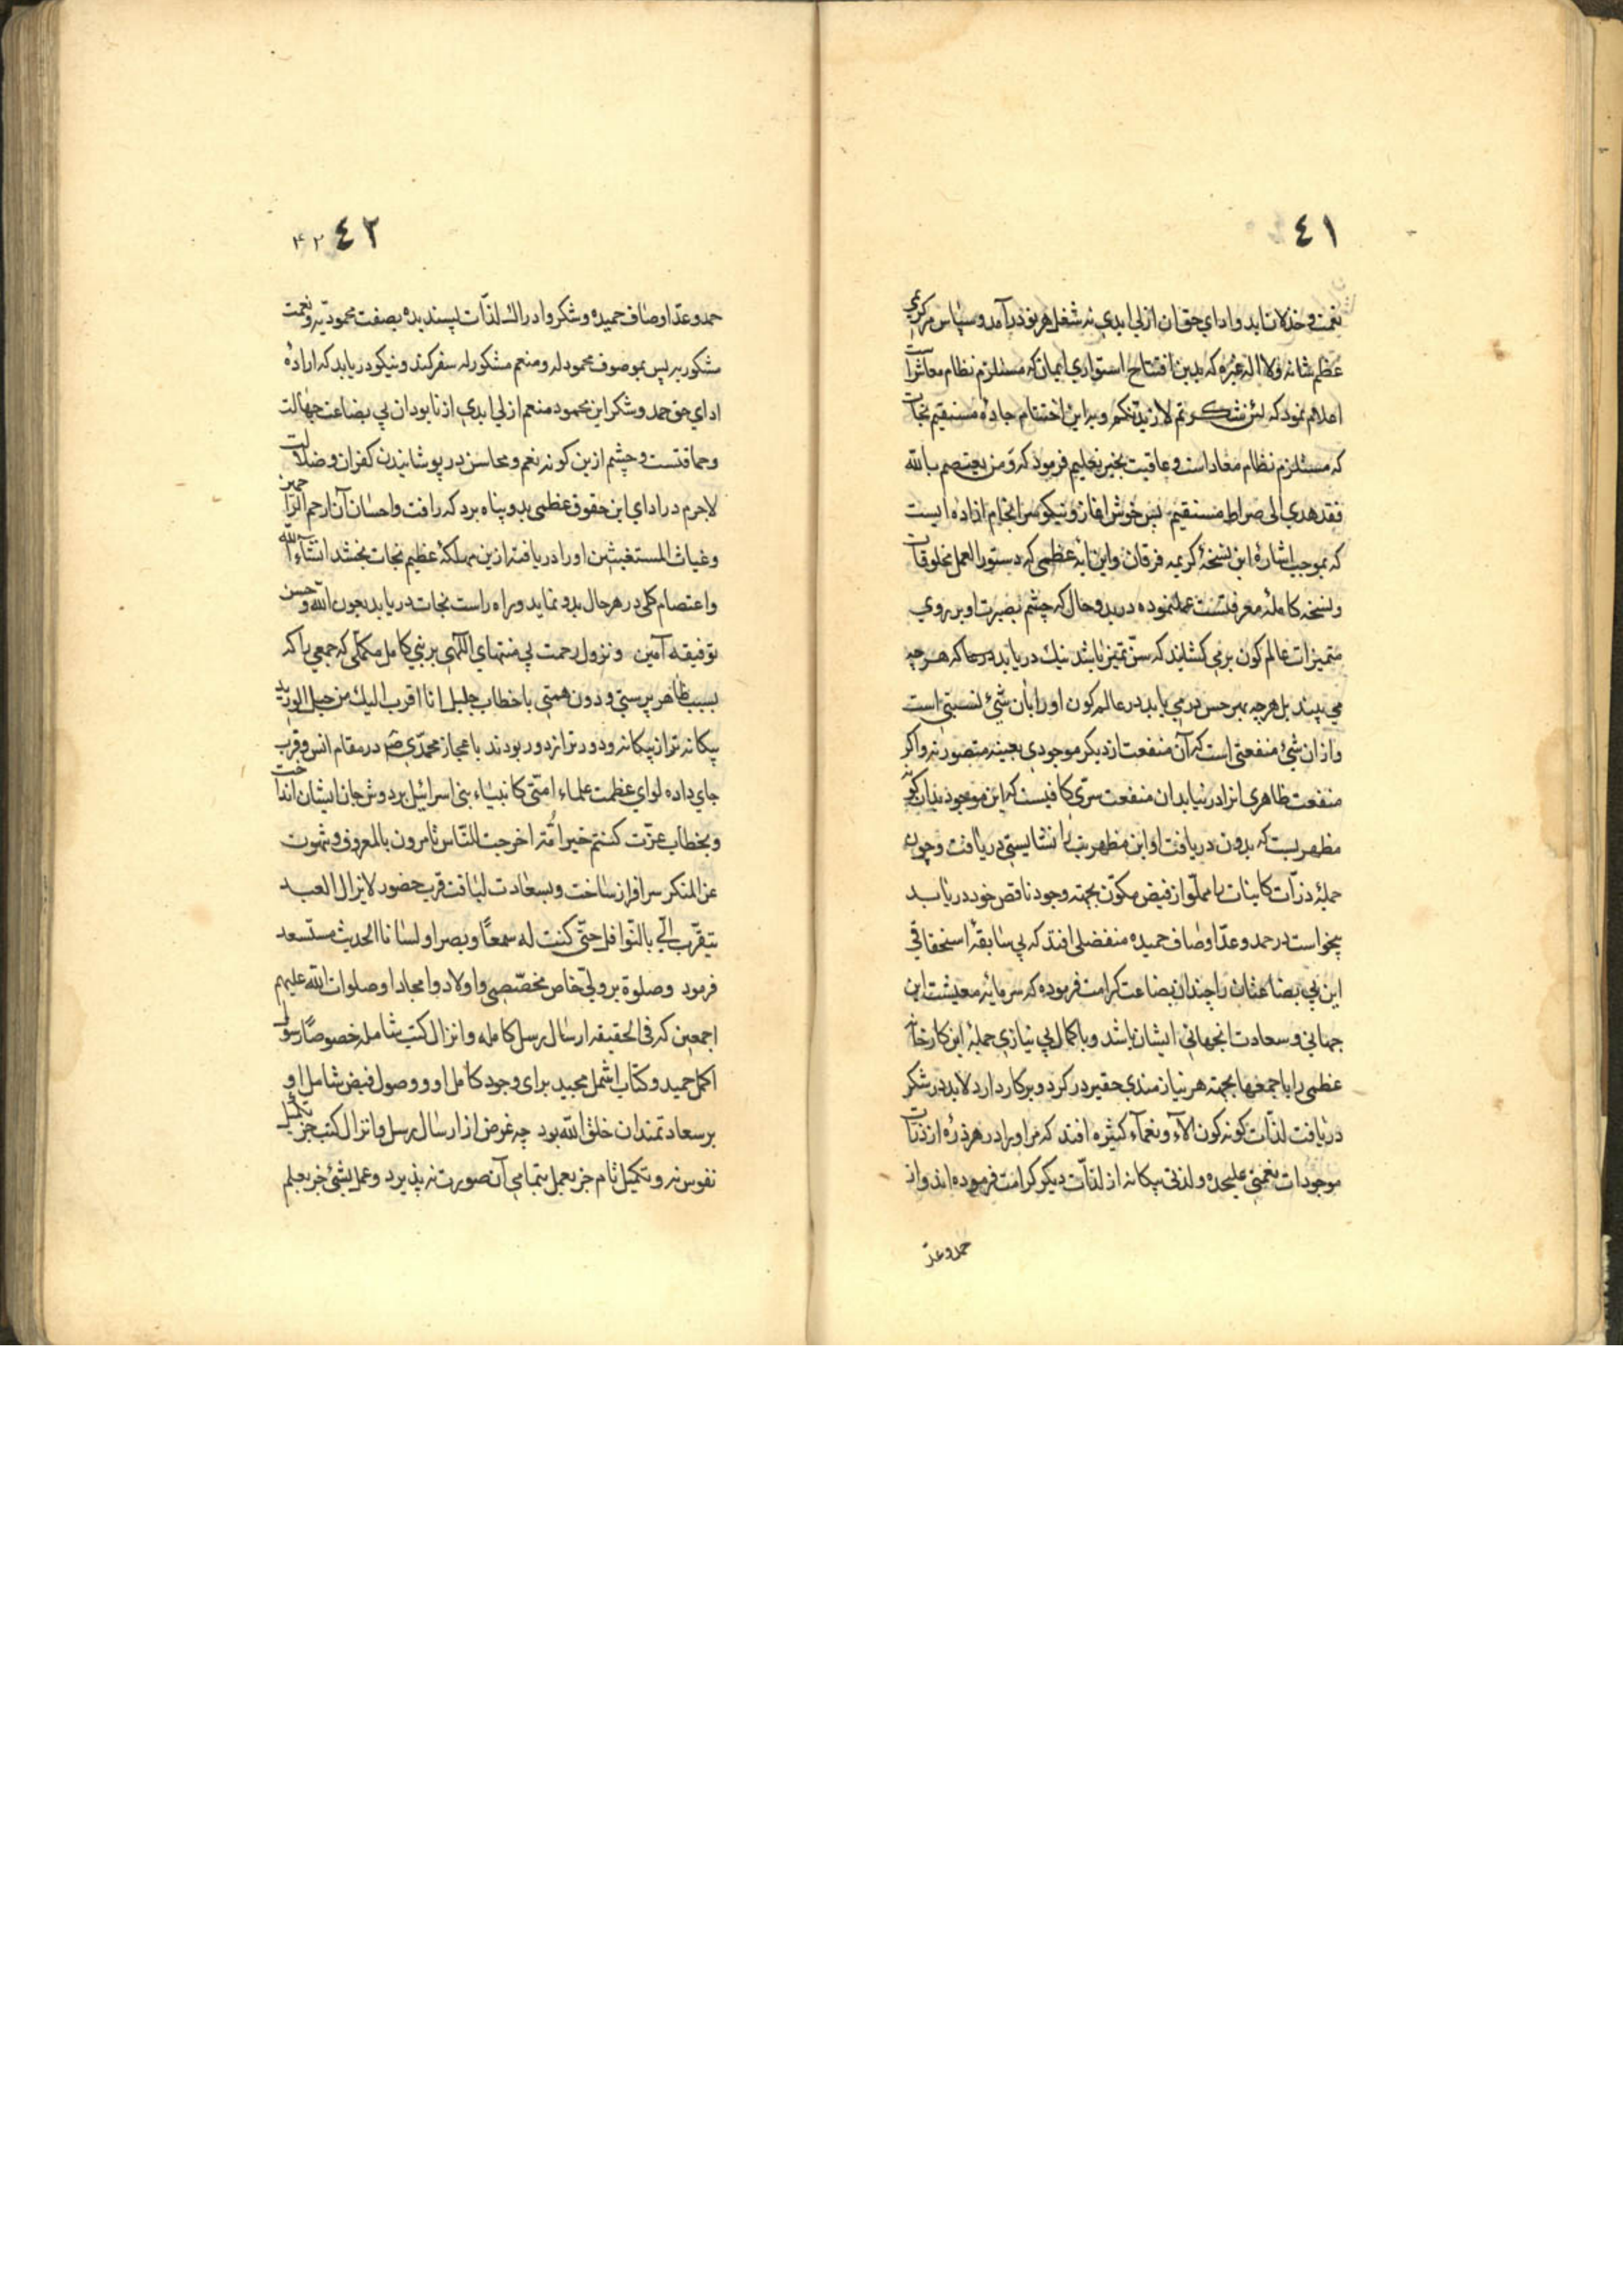 ٤١
نقمت و خذلان ابد و اداي حق ان ازلي ابدي نه شغل هر بود درآمد و سپاس مر كريمي
عظم شانه ولا اله غيره كه بدين افتتاح استواري ايمان كه مستلزم نظام معاش است
اعلام نمود كه لئن شكرتم لازيدنكم و براين اختتام جادهٔ مستقيم نجات
كه مستلزم نظام معاد است و عاقبت بخير تعليم فرمود كه و من يعتصم بالله
فقد هدي الى صراط مستقيم پس خوش اغاز و نيكو سرانجام ازادهٔ ايست
كه بموجب اشارهٔ اين نسخهٔ كريمه فرقان واين ايهٔ عظمى كه دستور العمل مخلوقات
و نسخه كاملهٔ معرفتست عمل نموده در بدو حال كه چشم بصيرت او بر روي
متميزات عالم كون برمي كشايند كه سنّ تميز باشد نيك دريابد كه هر چه
مي بيند بل هر چه بهر حس در مي يابد در عالم كون او را بان شيئ نسبتي است
و از ان شيئ منفعتي است كه آن منفعت از ديكر موجودي بعينه متصور نه و اكر
منفعت ظاهرى انرا در نيابد ان منفعت سرّي كافيست كه اين موجود بدان كونه
مظهريست كه بدون دريافت او اين مظهريت را نشايستي دريافت و چون
جملهٔ ذرّات كاينات را مملوّ از فيض مكوّن بجهته وجود ناقص خود دريابد
بخواست در حمد و عدّ اوصاف حميده منفضلى افتد كه بي سابقهٔ استحقاقي
اين بي بضاعتان را چندان بضاعت كرامت فرموده كه سرمايهٔ معيشت اين
جهاني و سعادت انجهاني ايشان باشد و با كمال بي نيازي جملهٔ اين كارخانه
عظمى را باجمعها بجهته هر نيازمندي حقير در كرد و بر كار دارد لابد در شكر
دريافت لذّات كونه كون الآء و نعمآء كثيره افتد كه مر او را در هر ذرهٔ از ذرّات
موجودات نعمتي عليحده و لذتي بيكانه از لذّات ديكر كرامت فرموده اند و از
حمد و عدّ
٤٢ ۴۲
حمد و عدّ اوصاف حميده و شكر و ادراك لذّات پسنديده بصفت محموديّه و نعمت
مشكوريه پس بموصوف محمود له و منعم مشكور له سفر كند و نيكو دريابد كه ارادهٔ
اداي حق حمد و شكر اين محمود منعم ازلي ابدي از نابودان بي بضاعت جهالت
و حماقتست و چشم ازين كونه نعم و محاسن در پوشانيدن كفران و ضلالت
لاجرم در اداي اين حقوق عظمى بدو پناه برد كه رافت و احسان آن ارحم الرّاحمين
و غياث المستغيثين او را دريافته ازين مهلكهٔ عظيم نجات بخشد انشآء الله
و اعتصام كلى در هر حال بدو نمايد و راه راست نجات دريابد بعون الله و حسن
توفيقه آمين و نزول رحمت بي منتهاي الٓهي بر نبي كامل مكمّلى كه جمعي را كه
بسبب ظاهر پرستي و دون همتي با خطاب جليل انا اقرب اليك من حبل الوريد
بيكانه تر از بيكانه و دورتر از دور بودند با عجاز محمّدي ص در مقام انس و قرب
جاي داده لواي عظمت علماء امتى كانبياء بنى اسرائيل بر دوش جان ايشان انداخت
و بخطاب عزّت كنتم خير اُمّة اخرجت للنّاس تامرون بالمعروف و تنهون
عن المنكر سرافراز ساخت و بسعادت لياقت قرب حضور لا يزال العبد
يتقرّب الّي بالنّوافل حتّى كنت له سمعاً و بصرا و لسانا الحديث مستسعد
فرمود و صلوة بر وليّ خاص مخصّصي و اولاد و امجاد او صلوات الله عليهم
اجمعين كه فى الحقيقه ارسال رسل كامله و انزال كتب شامله خصوصاً رسول
اكمل حميد و كتاب اشمل مجيد براى وجود كامل او و وصول فيض شامل او
بر سعادتمندان خلق الله بود چه غرض از ارسال رسل و انزال كتب جز تكميل
نفوس نه و تكميل تام جز بعمل بتمامي آن صورت نه پذيرد و عمل بشئ جز بعلم